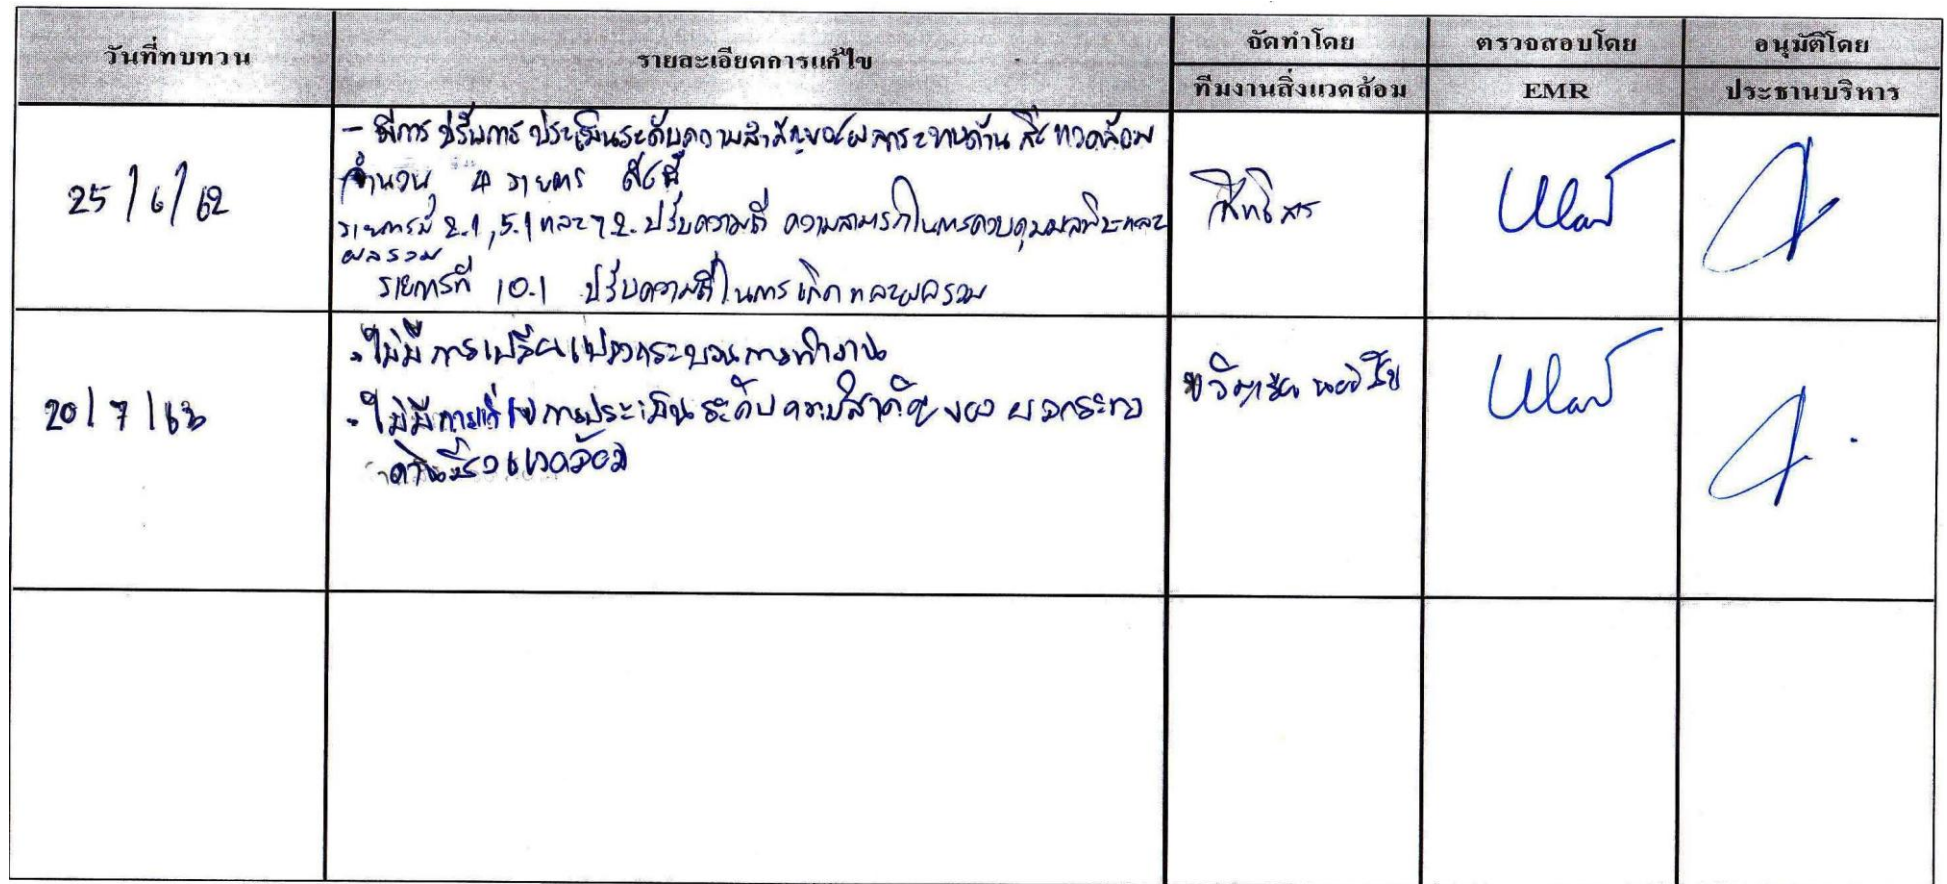 วันที่ทบทวน
รายละเอียดการแก้ไข
จัดทำโดย
ตรวจสอบโดย
อนุมัติโดย
ทีมงานสิ่งแวดล้อม
EMR
ประธานบริหาร
25/6/62
- มีการปรับการประเมินระดับความสำคัญของผลกระทบด้านสิ่งแวดล้อม
จำนวน 4 รายการ ดังนี้
รายการที่ 2.1, 5.1 และ 7.2. ปรับความถี่ ความสามารถในการควบคุมมลพิษและ
ผลรวม
รายการที่ 10.1 ปรับความถี่ในการเกิดและผลรวม
20/7/63
- ไม่มีการเปลี่ยนแปลงกระบวนการทำงาน
- ไม่มีการแก้ไขการประเมินระดับความสำคัญของผลกระทบ
ด้านสิ่งแวดล้อม